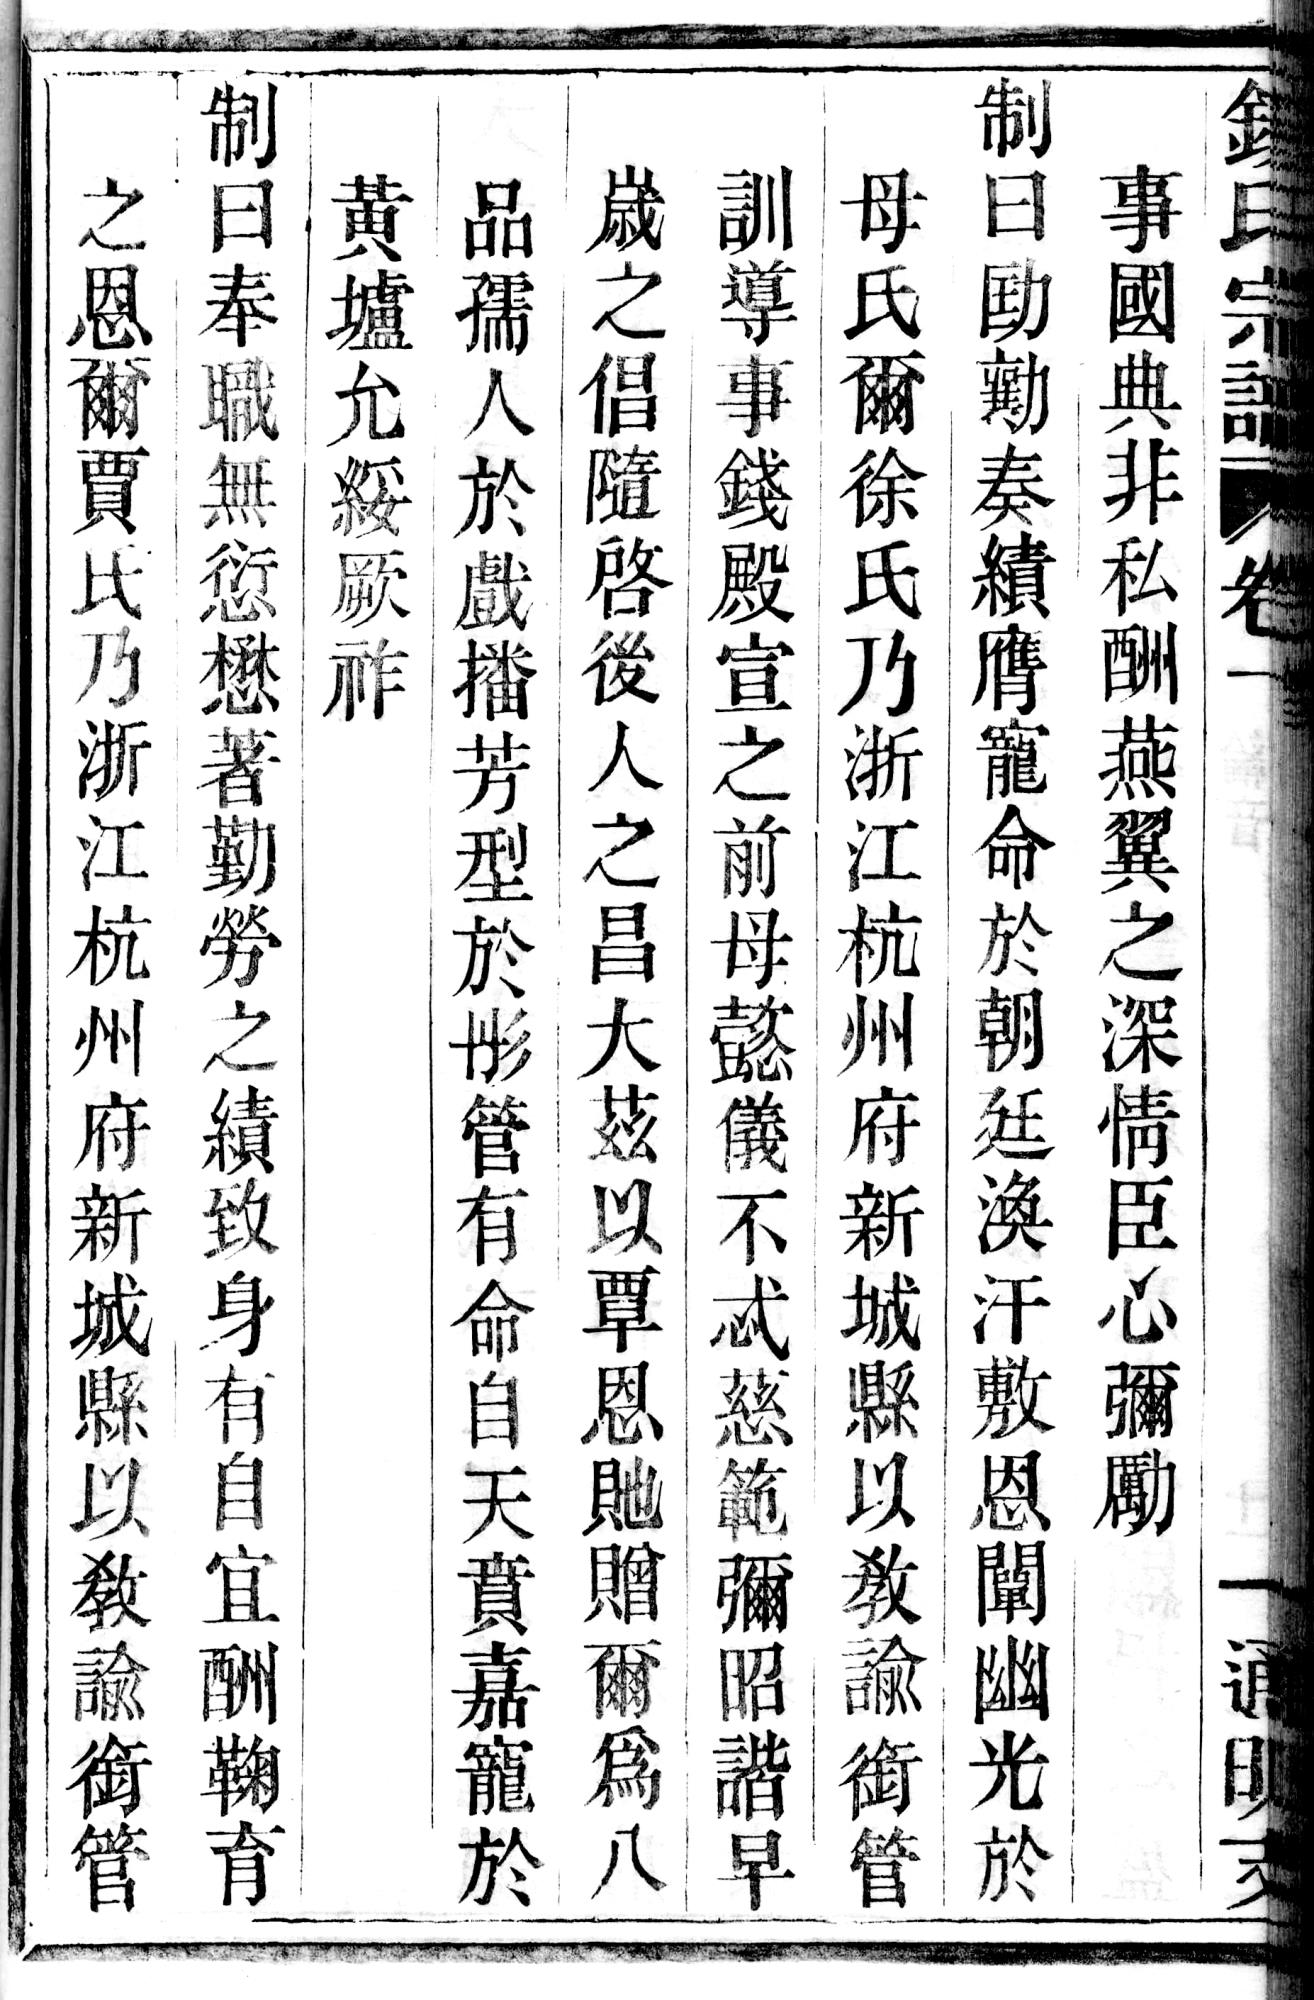 錢氏宗譜 卷一 一 通明
事國典非私酬燕翼之深情臣心彌勵
制曰劻勷奏績膺寵命於朝廷渙汗敷恩闡幽光於
母氏爾徐氏乃浙江杭州府新城縣以教諭銜管
訓導事錢殿宣之前母懿儀不忒慈範彌昭諧早
歲之倡隨啓後人之昌大茲以覃恩貤贈爾爲八
品孺人於戲播芳型於彤管有命自天賁嘉寵於
黃壚允綏厥祚
制曰奉職無愆懋著勤勞之績致身有自宜酬鞠育
之恩爾賈氏乃浙江杭州府新城縣以教諭銜管